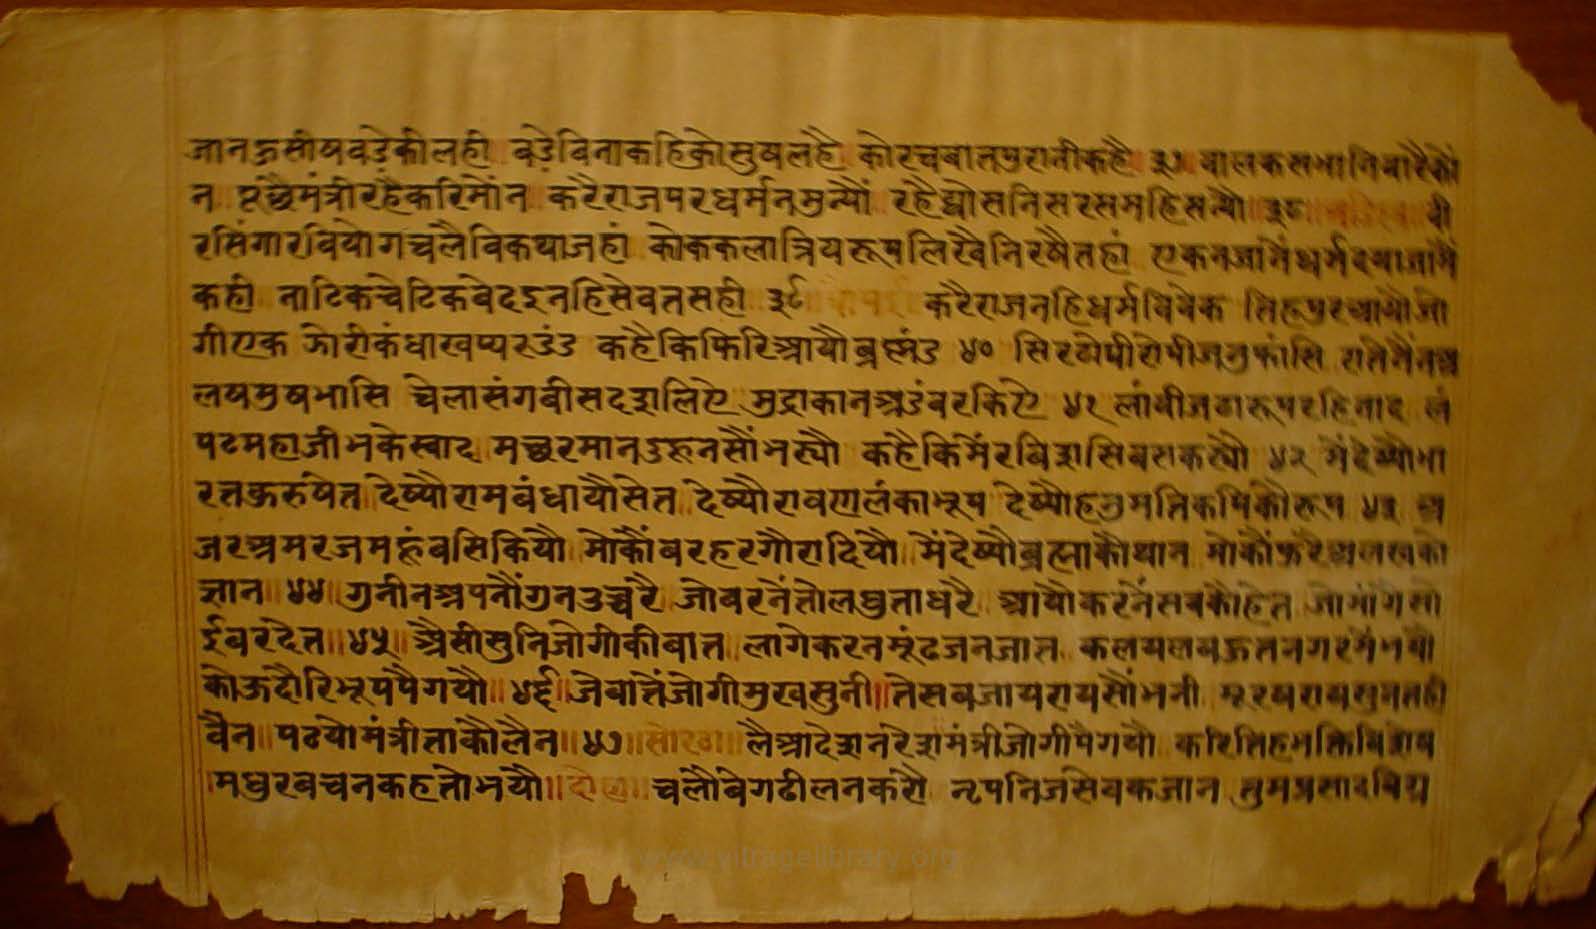 जानऊसीयबडेकीलही॥ बडेविनाकहिकोसुषलहै॥ कोरचबातपुरानीकहै॥ ३७॥ बालकसभानिवारैकौ
न॥ पूंछैमंत्रीरहैकरिमौंन॥ करैराजपरधर्मनमुन्यौं॥ रहैद्यौसनिसरसमहिसन्यौ॥ ३८॥ वी
रसिंगारवियोगच्चलैविकथाजहां॥ कोककलात्रियरूपलिखैनिरषैतहां॥ एकनजांनैंधर्मदयाजामैं
कही॥ नाटिकचेटिकबेदइनहिसेवतसही॥ ३९॥ चौपई॥ करैराजनहिधर्मविवेक॥ तिहपुरआयौजो
गीएक॥ झोरीकंधाखप्परडंड॥ कहैकिफिरिआयौब्रह्मंड॥ ४०॥ सिरटोपी
लषमुषभासि॥ चेलासंगबीसदशलिऐ॥ मुद्राकानअडंबरकिऐ॥ ४१॥ लांबीजटारूपरहिनाद॥ लं
पटमहाजीभकेस्वाद॥ मच्छरमानडरूनसौंभर्त्यौ॥ कहैकिमैंरबिशसिबसकर्त्यौ॥ ४२॥ मैंदेष्यौभा
रतऊरुषेत॥ देष्यौरामबंधायौसेत॥ देष्यौरावणलंकाभूप॥ देष्यौहनुमतिकपिकौरूप॥ ४३॥ अ
जरअमरजमहूंबसिकियौ॥ मोकौंबरहरगौरादियौ॥ मैंदेष्यौब्रह्माकौथान॥ मोकौंफुरैअलखको
ज्ञान॥ ४४॥ गुनीनअपनौंगुनउच्चरै॥ जोबरनैंतोलघुताधरै॥ आयौकरनैंसबकौहेत॥ जोमांगैसो
ईबरदेत॥ ४५॥ अैसीसुनिजोगीकीबात॥ लागेकरनमूंढजनजात॥ कलयलबऊतनगरमैंभयौ॥
कोऊदौरिभूपपैगयौ॥ ४६॥ जेबातैंजोगीमुखसुनी॥ तेसबजायरायसौंभनी॥ मूरषरायसुनतही
बैन॥ पठयोमंत्रीताकौलैन॥ ४७॥ सोरठा॥ लैआदेशनरेशमंत्रीजोगीपैगयौ॥ करितिहभक्तिविशेष
मधुरबच्चनकहतोभयौ॥ दोहा॥ च्चलौबेगढीलनकरौ॥ नृपनिजसेवकजान॥ तुमप्रसाद
www.vitragelibrary.org